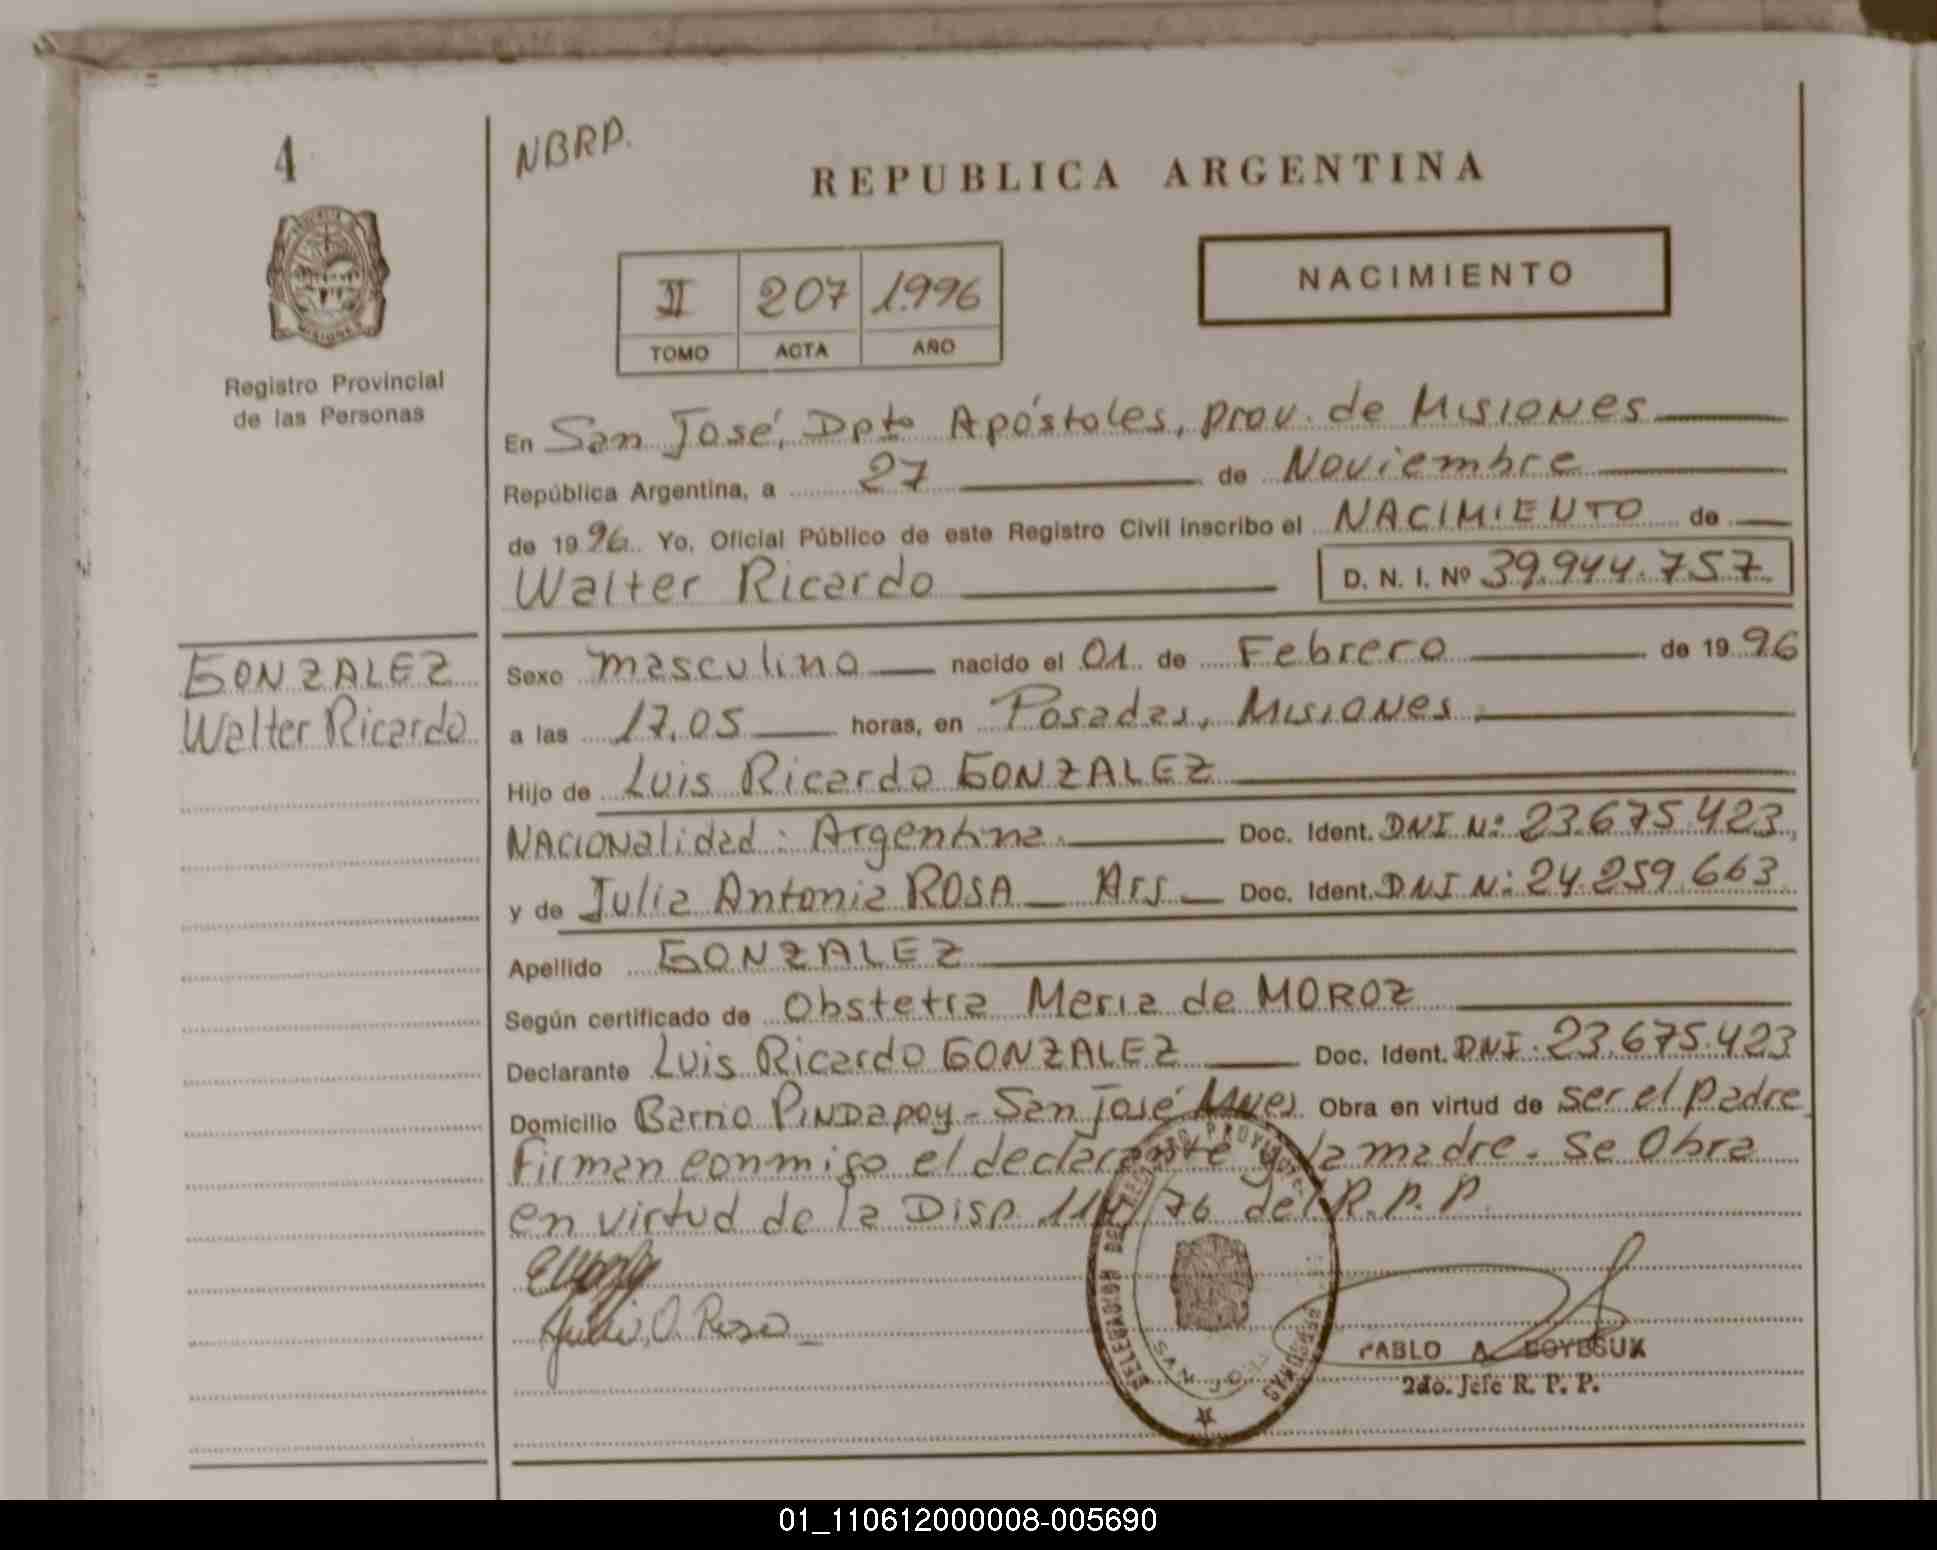 4
NBRP.
REPUBLICA ARGENTINA
NACIMIENTO
II 207 1996
TOMO ACTA AÑO
Registro Provincial
de las Personas
En San José, Dpto Apóstoles, prov. de Misiones
República Argentina, a 27 de Noviembre
de 1996. Yo, Oficial Público de este Registro Civil inscribo el NACIMIENTO de
Walter Ricardo D. N. I. Nº 39.944.757
GONZALEZ
Walter Ricardo
Sexo masculino nacido el 01 de Febrero de 1996
a las 17.05 horas, en Posadas, Misiones
Hijo de Luis Ricardo GONZALEZ
Nacionalidad: Argentina. Doc. Ident. DNI Nº 23.675.423,
y de Julia Antonia ROSA Doc. Ident. DNI Nº 24.259.663
Apellido GONZALEZ
Según certificado de Obstetra Maria de MOROZ
Declarante Luis Ricardo GONZALEZ Doc. Ident. DNI. 23.675.423
Domicilio Barrio Pindapoy - San José Mnes. Obra en virtud de ser el padre
Firman conmigo el declarante y la madre. Se Obra
en virtud de la Disp. /76 del R.P.P.
SAN JOSE
PABLO A.
2do. Jefe R. P. P.
01_110612000008-005690